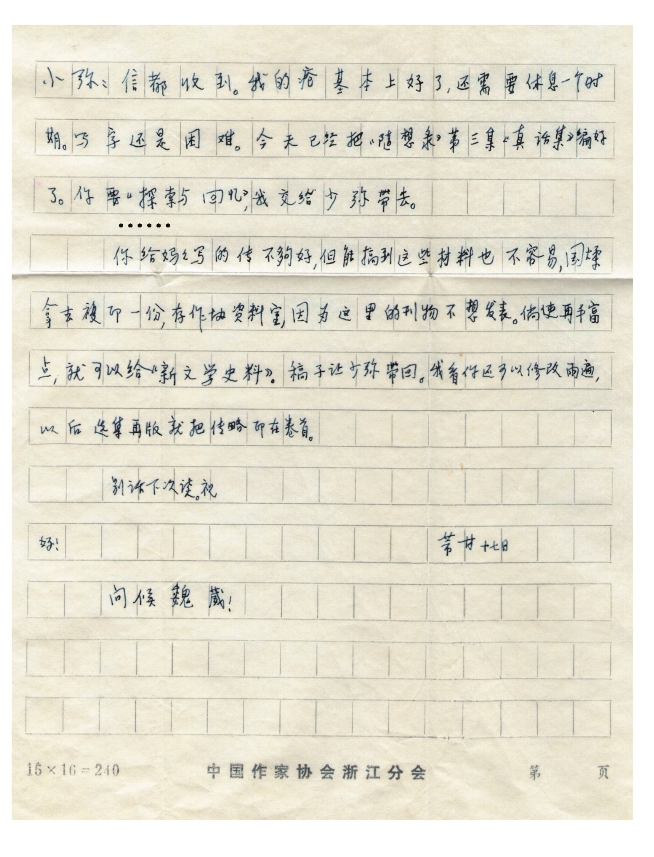 小弥：信都收到。我的疮基本上好了，还需要休息一个时
期。写字还是困难。今天已经把《随想录》第三集《真话集》编好
了。你要《探索与回忆》，我交给少弥带去。
你给妈妈写的传不够好，但能搞到这些材料也不容易，国煣
拿去複印一份，存作协资料室，因为这里的刊物不想发表。倘使再丰富
点，就可以给《新文学史料》。稿子让少弥带回。我看你还可以修改两遍，
以后选集再版就把传略印在卷首。
别话下次谈。祝
好！ 芾甘 十七日
问候魏葳！
15×16＝240 中国作家协会浙江分会 第 页